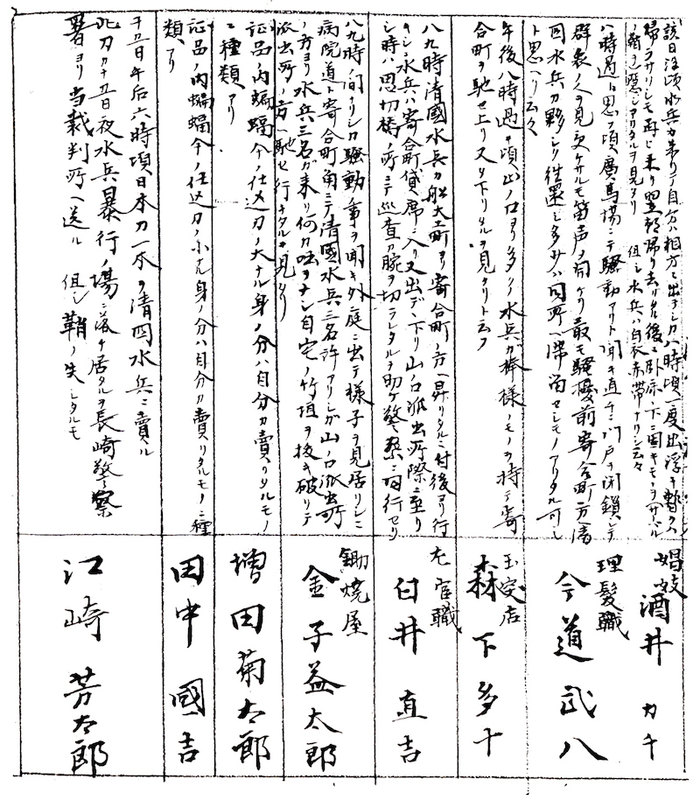 該日住頃水兵カ来リテ自分ハ相方ニ出テシカ八時頃一度出浮キ暫ク
帰ラサリシモ再ヒ来リ翌朝帰リ去リタル後ニ臥床ノ下ニ固キモノヲ
ノ鞘ヲ隠シアリタルヲ見タリ 但シ水兵ハ白衣赤帯ナリシ云々
娼妓
酒井カチ
八時過ト思フ頃廣馬場ニテ騒動アリト聞キ直チニ門戸ヲ閉鎖シテ
群衆ノ人ヲ見受ケサルモ笛声ヲ聞ケリ最モ騒擾前寄合町方清
国水兵カ夥シク往還シ多分ハ同所ヘ滞留セシモノアリタル可シ
ト思ヘリ云々
理髪職
今道武八
午後八時過ノ頃山ノ口ヨリ多クノ水兵カ棒様ノモノヲ持テ寄
合町ヲ馳セ上リ又タ下リタルヲ見タリト云フ
玉突店
森下多十
八九時清國水兵カ船大工町ヨリ寄合町ノ方ヘ昇リタルニ付後ヨリ行
クシ水兵ハ寄合町貸席ニ入リ又出デ下リ山ノ口派出所際ニ至リ
シ時ハ思切橋ノ所ニテ巡査カ腕ヲ切ラレタルヲ助ケ警察ニ同行セリ
左官職
臼井直吉
八九時ノ間タリシカ騒動ノ事ヲ聞キ外庭ニ出テ様子ヲ見居リシニ
病院道ト寄合町角ニテ清國水兵三名許アリシカ山ノ口派出所
ノ方ヨリ水兵三名カ来リ何カ咄ヲナシ自宅ノ竹垣ヲ抜キ破リテ
派出所ノ方ヘ馳セ行キタルヲ見タリ
鋤焼屋
金子益太郎
証品ノ内蝙蝠傘ノ仕込刀ノ大ナル身ノ分ハ自分カ賣リタルモノ
ニ種類アリ
増田菊太郎
証品ノ内蝙蝠傘ノ仕込刀ノ小ナル身ノ分ハ自分カ賣リタルモノニ種
類アリ
田中國吉
十五日午后六時頃日本刀一本ヲ清国水兵ニ賣ル
此刀カ十五日夜水兵暴行ノ場ニ落チ居タルヲ長崎警察
署ヨリ当裁判所ヘ送ル 但シ鞘ノ失シタルモ
江崎芳太郎